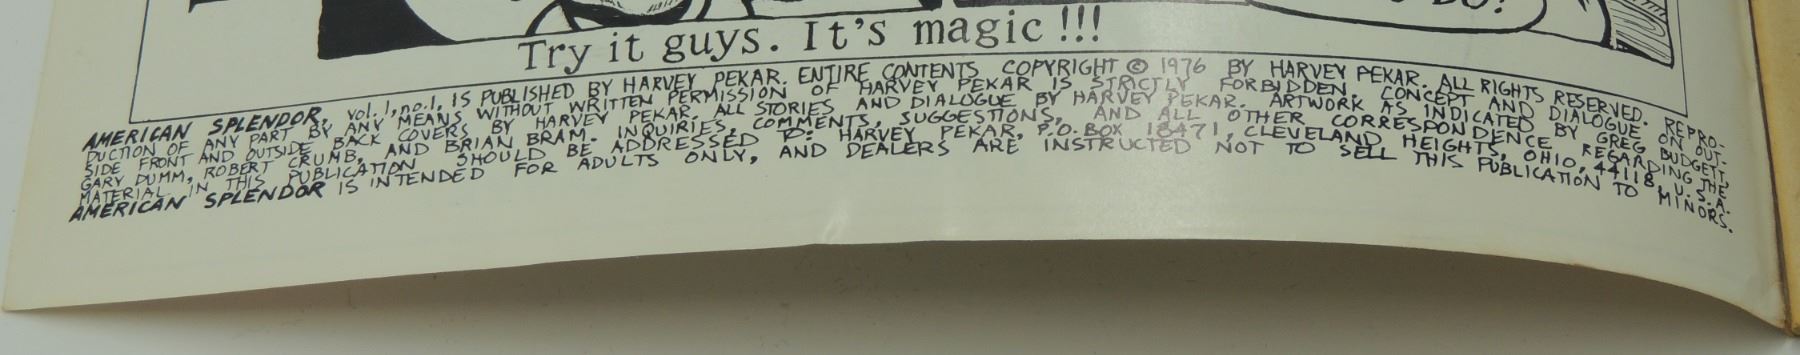 DO!
Try it guys. It's magic !!!
AMERICAN SPLENDOR, vol. 1, no. 1, IS PUBLISHED BY HARVEY PEKAR. ENTIRE CONTENTS COPYRIGHT © 1976 BY HARVEY PEKAR. ALL RIGHTS RESERVED. REPRO-
DUCTION OF ANY PART BY ANY MEANS WITHOUT WRITTEN PERMISSION OF HARVEY PEKAR IS STRICTLY FORBIDDEN. CONCEPT AND DIALOGUE ON OUT-
SIDE FRONT AND OUTSIDE BACK COVERS BY HARVEY PEKAR. ALL STORIES AND DIALOGUE BY HARVEY PEKAR. ARTWORK AS INDICATED BY GREG BUDGETT,
GARY DUMM, ROBERT CRUMB, AND BRIAN BRAM. INQUIRIES, COMMENTS, SUGGESTIONS, AND ALL OTHER CORRESPONDENCE REGARDING THE
MATERIAL IN THIS PUBLICATION SHOULD BE ADDRESSED TO: HARVEY PEKAR, P.O. BOX 18471, CLEVELAND HEIGHTS, OHIO, 44118, U.S.A.
AMERICAN SPLENDOR IS INTENDED FOR ADULTS ONLY, AND DEALERS ARE INSTRUCTED NOT TO SELL THIS PUBLICATION TO MINORS.